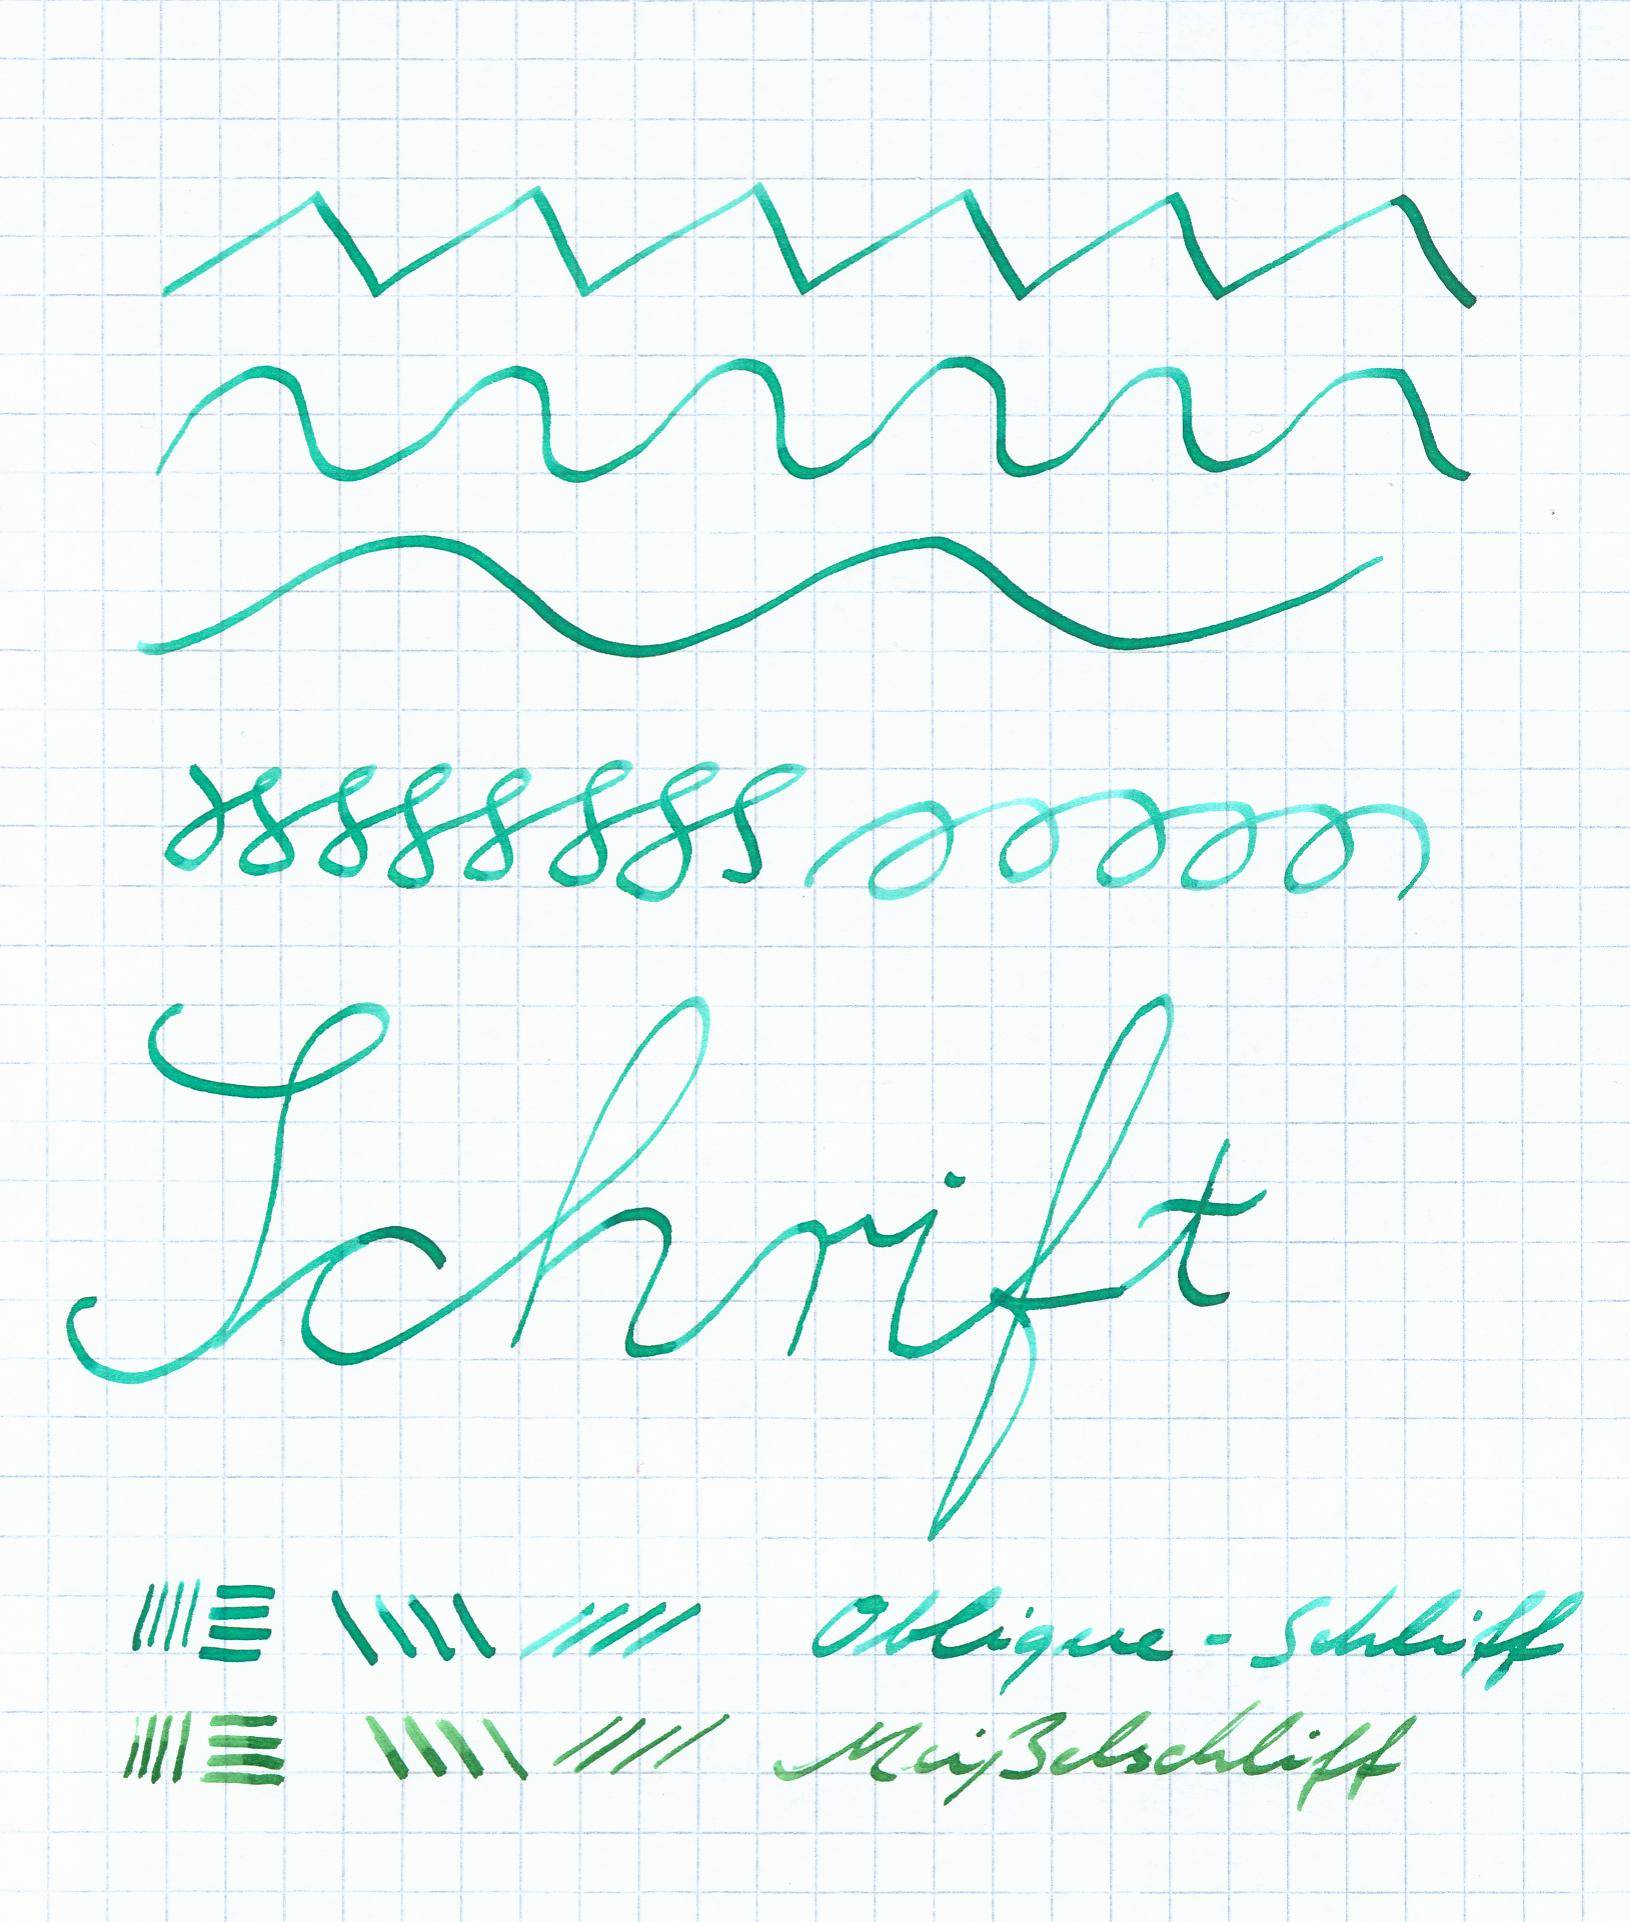 Schrift
Oblique - Schliff
Meißelschliff